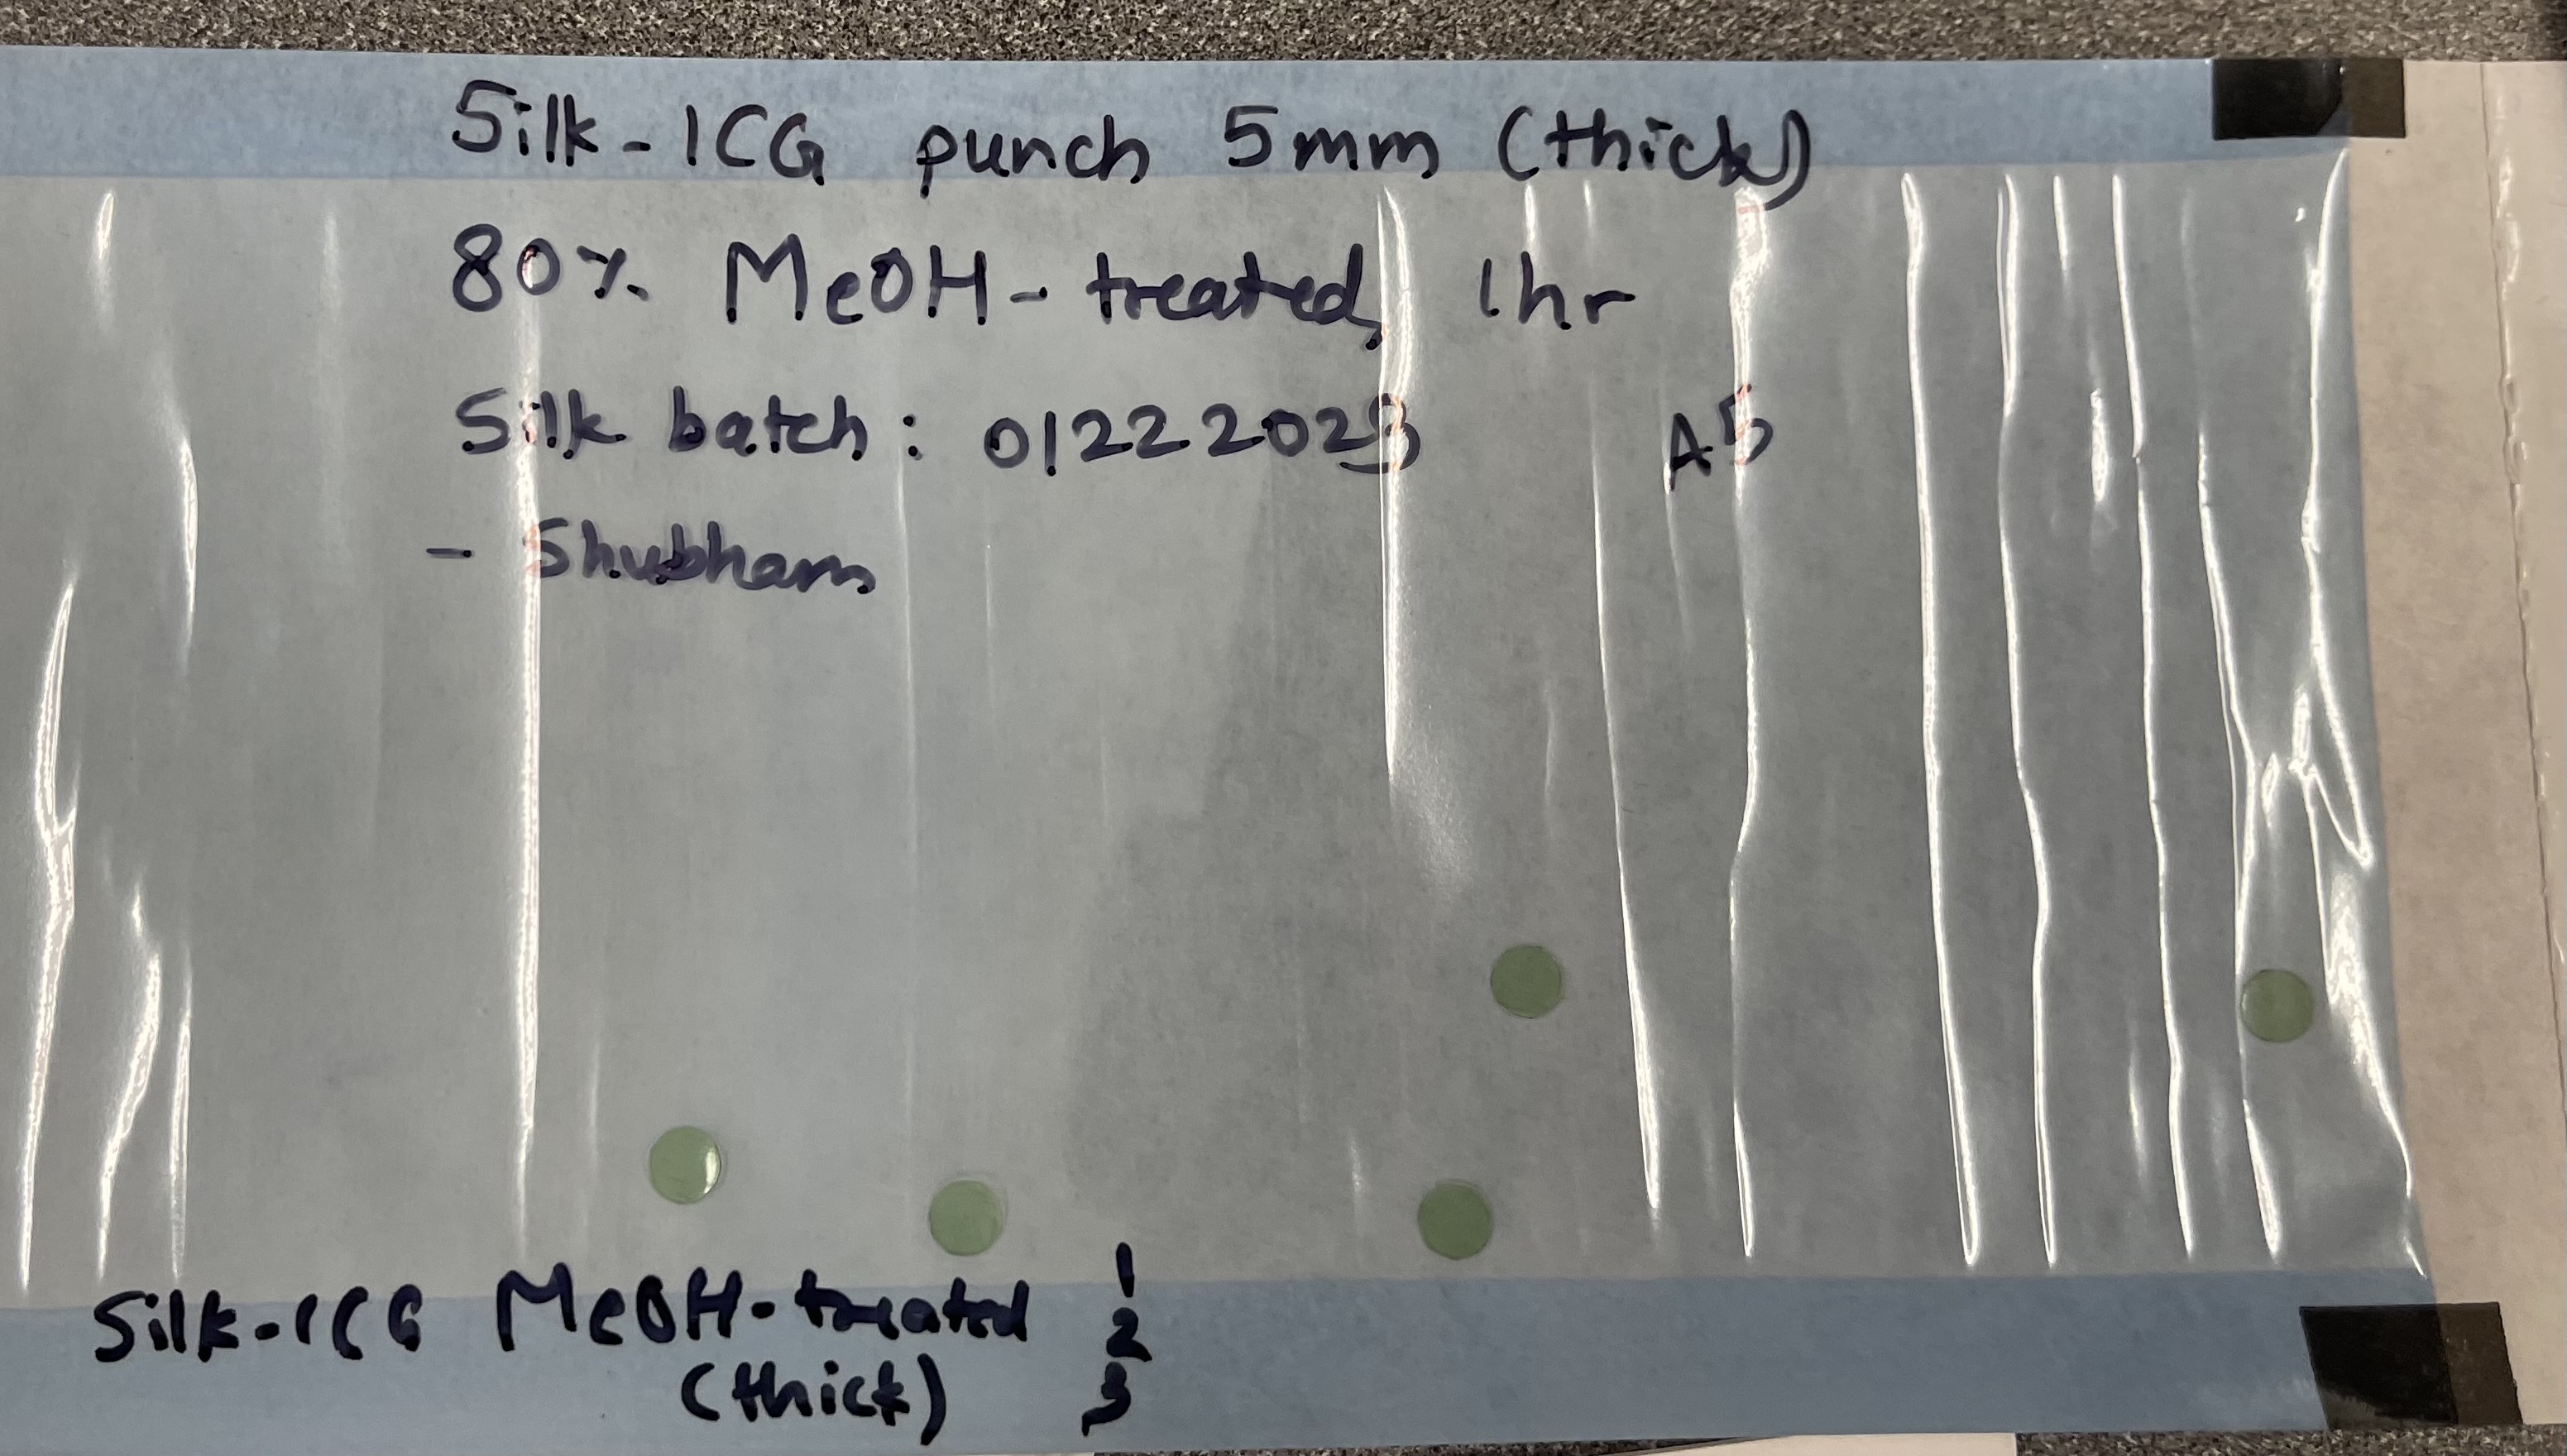 Silk-ICG punch 5mm (thick)
80% MeOH-treated, 1hr
Silk batch: 01222023 A5
- Shubham
Silk-ICG MeOH-treated 1
2
(thick) 3